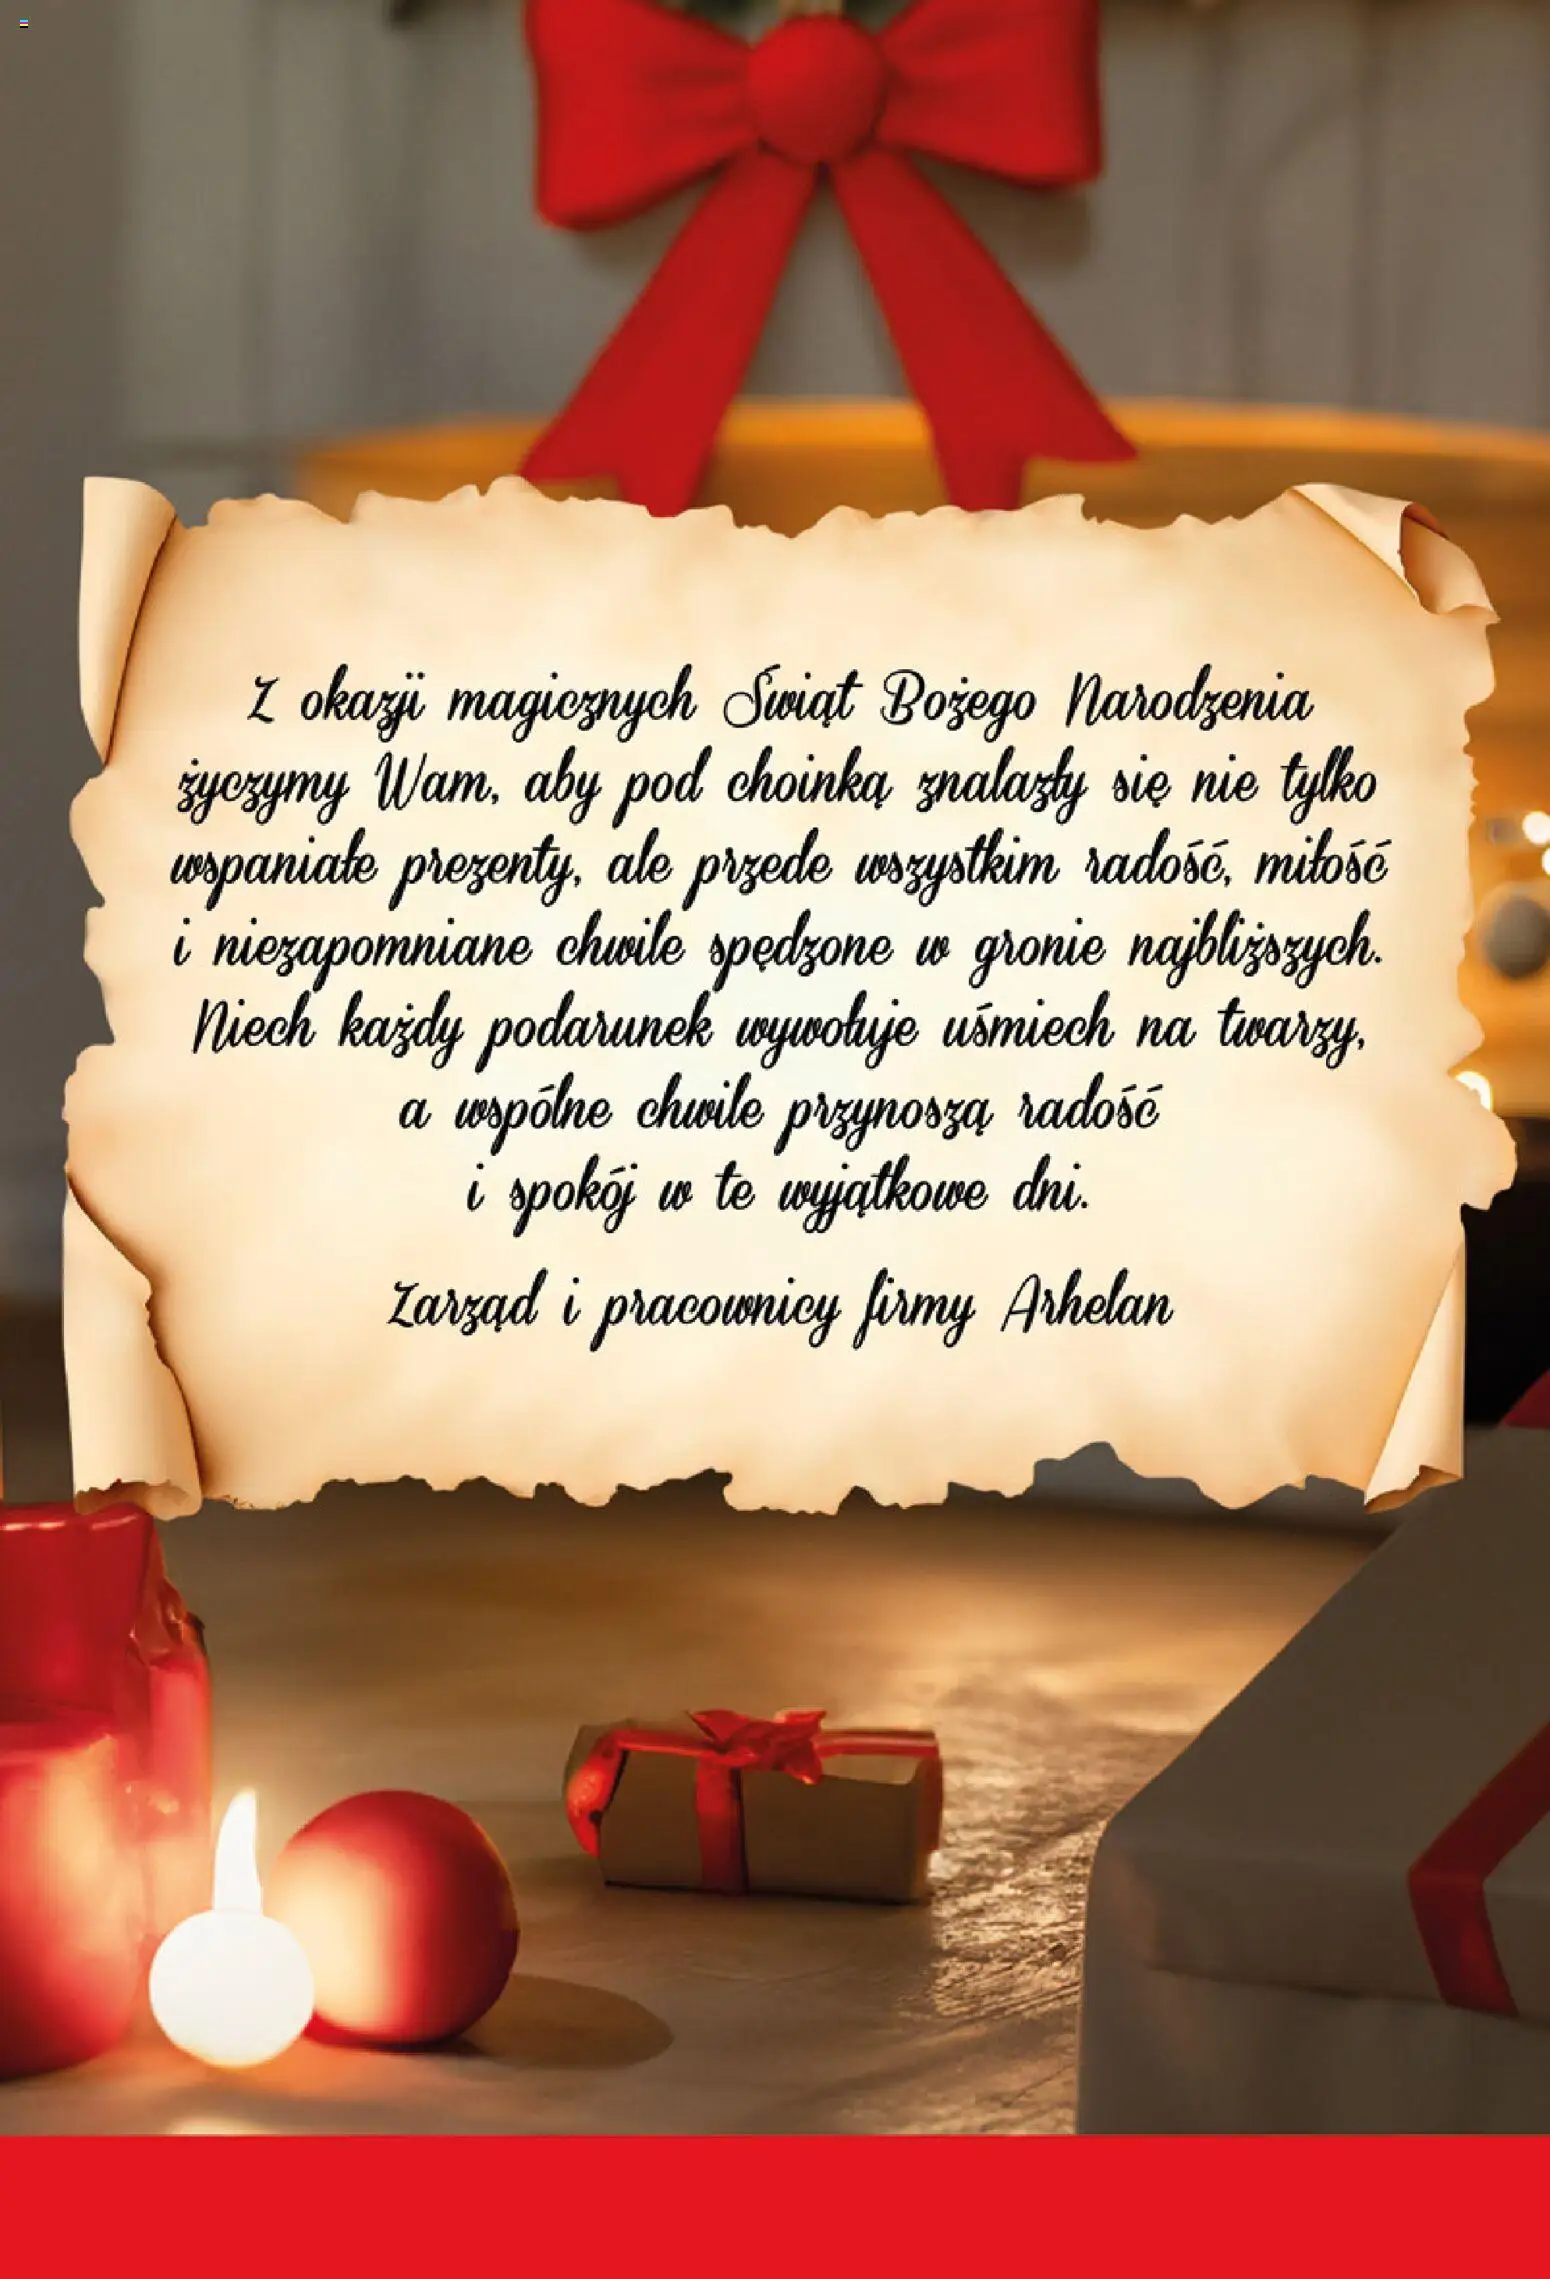 Z okazji magicznych Świąt Bożego Narodzenia
życzymy Wam, aby pod choinką znalazły się nie tylko
wspaniałe prezenty, ale przede wszystkim radość, miłość
i niezapomniane chwile spędzone w gronie najbliższych.
Niech każdy podarunek wywołuje uśmiech na twarzy,
a wspólne chwile przynoszą radość
i spokój w te wyjątkowe dni.
Zarząd i pracownicy firmy Arhelan